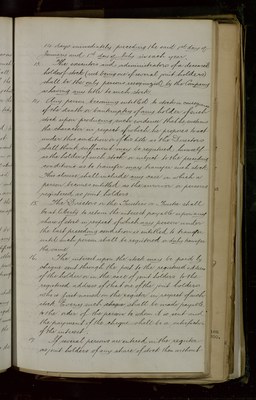 14 days immediately preceding the said 1st day of
January and 1st day of July in each year.
The executors and administrators of a deceased
holder of stock (not being one of several joint holders)
shall be the only persons recognized by the Company
as having any title to such stock.
Any person becoming entitled to stock in consequence
of the death or bankruptcy of any holder of such
stock upon producing such evidence that he sustains
the character in respect of which he proposes to act
under this condition or of his title as the Directors
shall think sufficient may be registered himself
as the holder of such stock or subject to the preceding
conditions as to transfer may transfer such stock.
This clause shall include any case in which a
person becomes entitled as the survivor of persons
registered as joint holders.
The Directors or the Trustees or Trustee shall
be at liberty to retain the interest payable upon any
share of stock in respect of which any person under
the last preceding condition is entitled to transfer
until such person shall be registered or duly transfer
the same.
The interest upon the stock may be paid by
cheque sent through the post to the registered address
of the holder or in the case of joint holders to the
registered address of that one of the joint holders
who is first named on the register in respect of such
stock. Every such cheque shall be made payable
to the order of the person to whom it is sent and
the payment of the cheque shall be a satisfaction
of the interest.
If several persons are entered in the register
as joint holders of any share of stock then without